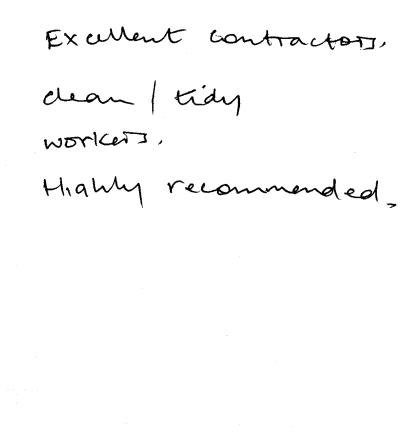 Excellent contractors.
clean / tidy
workers.
Highly recommended.